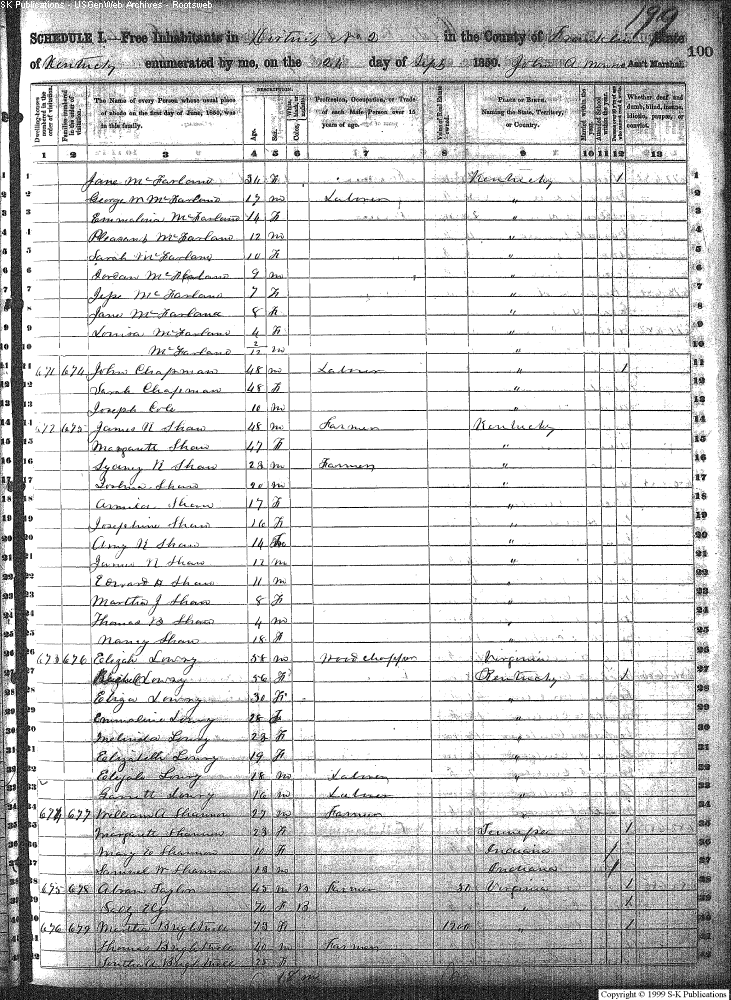 SK Publications - USGenWeb Archives - Rootsweb
199
SCHEDULE I.—Free Inhabitants in District No 2 in the County of Franklin State
of Kentucky enumerated by me, on the 24 day of Sept 1850. John A Ass't Marshal. 100
DESCRIPTION.
Dwelling-houses numbered in the order of visitation.
Families numbered in the order of visitation.
The Name of every Person whose usual place of abode on the first day of June, 1850, was in this family.
Age.
Sex.
White, Color, black, or mulatto.
Profession, Occupation, or Trade of each Male Person over 15 years of age.
Value of Real Estate owned.
PLACE OF BIRTH. Naming the State, Territory, or Country.
Married within the year.
Attended School within the year.
Persons over 20 y'rs of age who cannot read & write.
Whether deaf and dumb, blind, insane, idiotic, pauper, or convict.
1 2 3 4 5 6 7 8 9 10 11 12 13
1 Jane McFarland 36 F Kentucky 1 1
2 George M McFarland 17 m Laborer " 2
3 Emmaleria McFarland 14 F " 3
4 Pleasant McFarland 12 m " 4
5 Sarah McFarland 10 F " 5
6 McFarland 9 m " 6
7 Jesse McFarland 7 F " 7
8 Jane McFarland 8 F " 8
9 Louisa McFarland 4 F " 9
10 McFarland 2/12 m " 10
11 671 674 John Chapman 48 m Laborer " 1 11
12 Sarah Chapman 48 F " 12
13 Joseph Cole 10 m " 13
14 672 675 James N Shaw 48 m Farmer Kentucky 14
15 Margarett Shaw 47 F " 15
16 Sydney N Shaw 23 m Farmer " 16
17 Joshua Shaw 20 m " 17
18 Shaw 17 F " 18
19 Josephine Shaw 16 F " 19
20 Amy N Shaw 14 F " 20
21 James N Shaw 12 m " 21
22 Edward D Shaw 11 m " 22
23 Martha J Shaw 8 F " 23
24 Thomas B Shaw 4 m " 24
25 Nancy Shaw 18 F " 25
26 673 676 Elijah Lowry 58 m Wood chopper Virginia 26
27 Lowry 56 F Kentucky 1 27
28 Eliza Lowry 30 F " 28
29 Emmaline Lowry 28 F " 29
30 Melinda Lowry 22 F " 30
31 Elizabeth Lowry 19 F " 31
32 Elijah Lowry 18 m Laborer " 32
33 Garrett Lowry 16 m Laborer " 33
34 674 677 William A Shannon 27 m Farmer " 34
35 Margarett Shannon 23 F Tennessee 1 35
36 Mary E Shannon 10 F Indiana 1 36
37 Samuel W Shannon 13 m Indiana 1 37
38 675 678 Abram Taylor 45 m B Farmer 50 Virginia 1 38
39 70 F B " 1 39
40 676 679 Martha 73 F 1200 " 1 40
41 Thomas 40 m Farmer 41
42 25 F 42
18 m
Copyright © 1999 S-K Publications